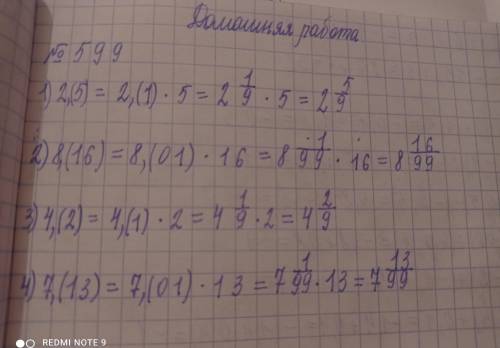 Домашняя работа
№ 599
1) 2,(5) = 2,(1) · 5 = 2 1/9 · 5 = 2 5/9
2) 8,(16) = 8,(01) · 16 = 8 1/99 · 16 = 8 16/99
3) 4,(2) = 4,(1) · 2 = 4 1/9 · 2 = 4 2/9
4) 7,(13) = 7,(01) · 13 = 7 1/99 · 13 = 7 13/99
REDMI NOTE 9